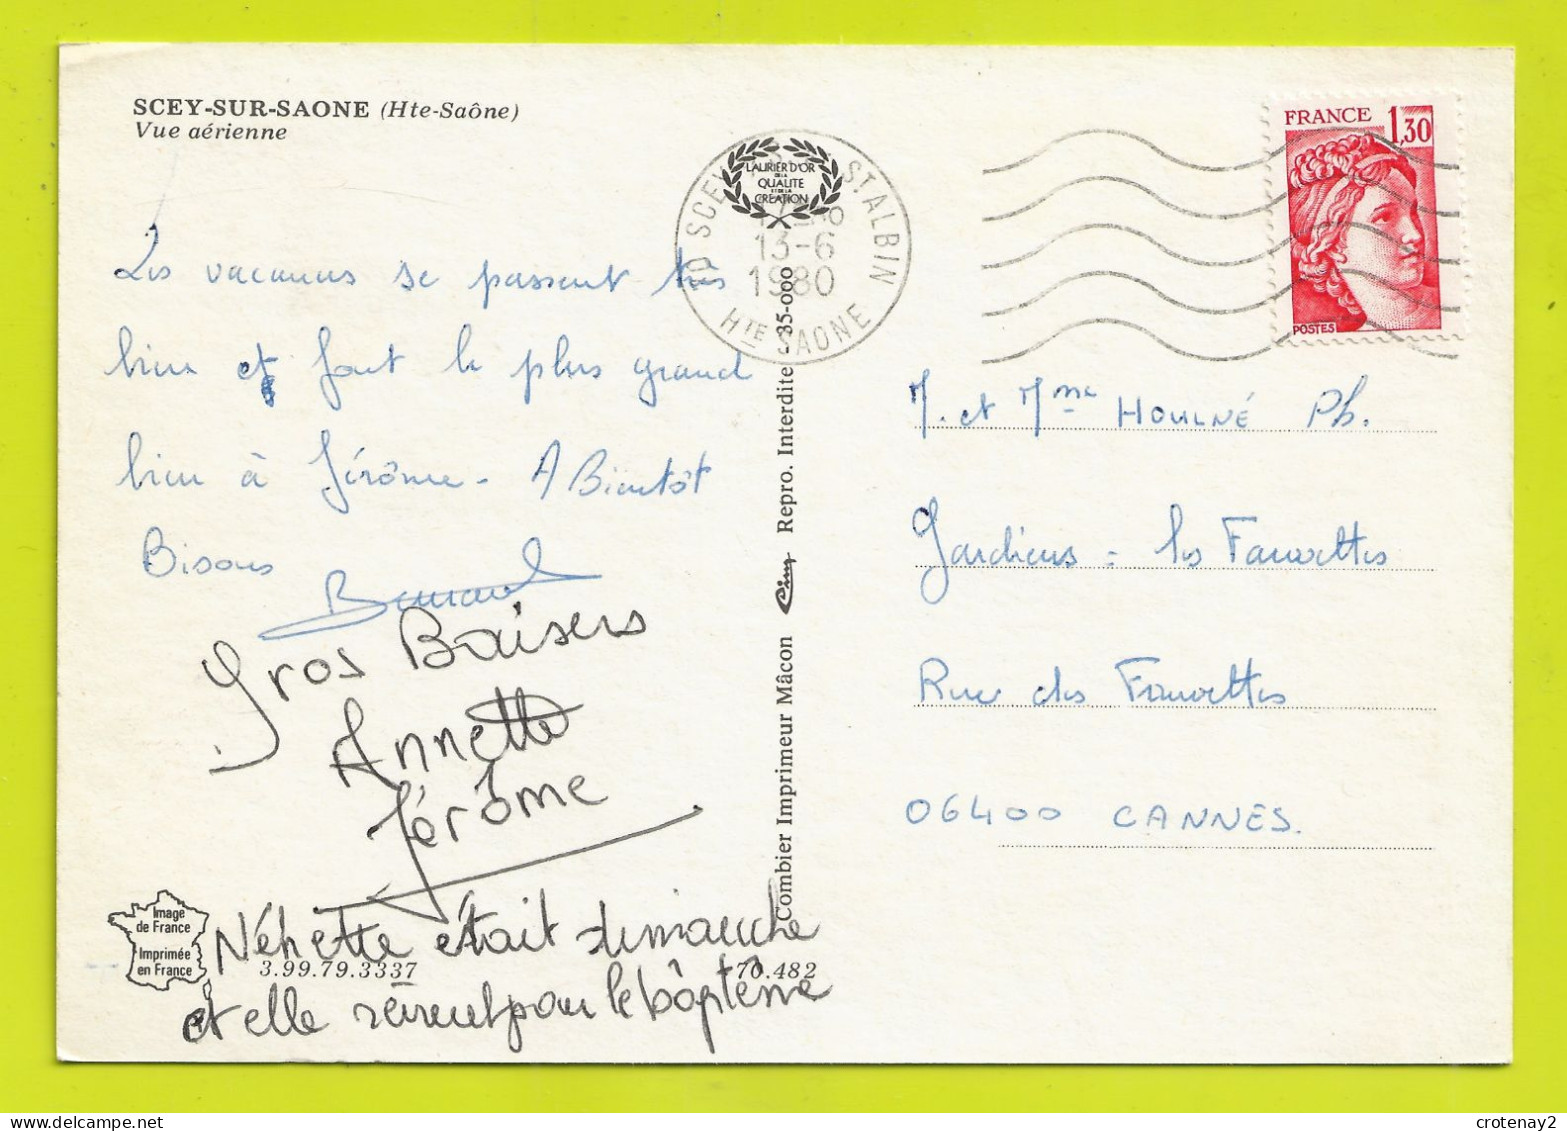 SCEY-SUR-SAONE (Hte-Saône)
Vue aérienne
Les vacances se passent très
bien et font le plus grand
bien à Jérôme - A Bientôt
Bisous
Bernard
Gros Baisers
Annette
Jérôme
Néhette était dimanche
et elle revient pour le baptême
Image
de France
Imprimée
en France
3.99.79.3337
70.482
Combier Imprimeur Mâcon Cim Repro. Interdite 35-000
LAURIER D'OR
DE LA
QUALITE
ET DE LA
CREATION
70 SCEY ST ALBIN
13-6
1980
HTE SAONE
FRANCE 1,30
POSTES
M. et Mme HOULNÉ Ph.
Gardiens = les Fauvettes
Rue des Fauvettes
06400 CANNES.
crotenay2